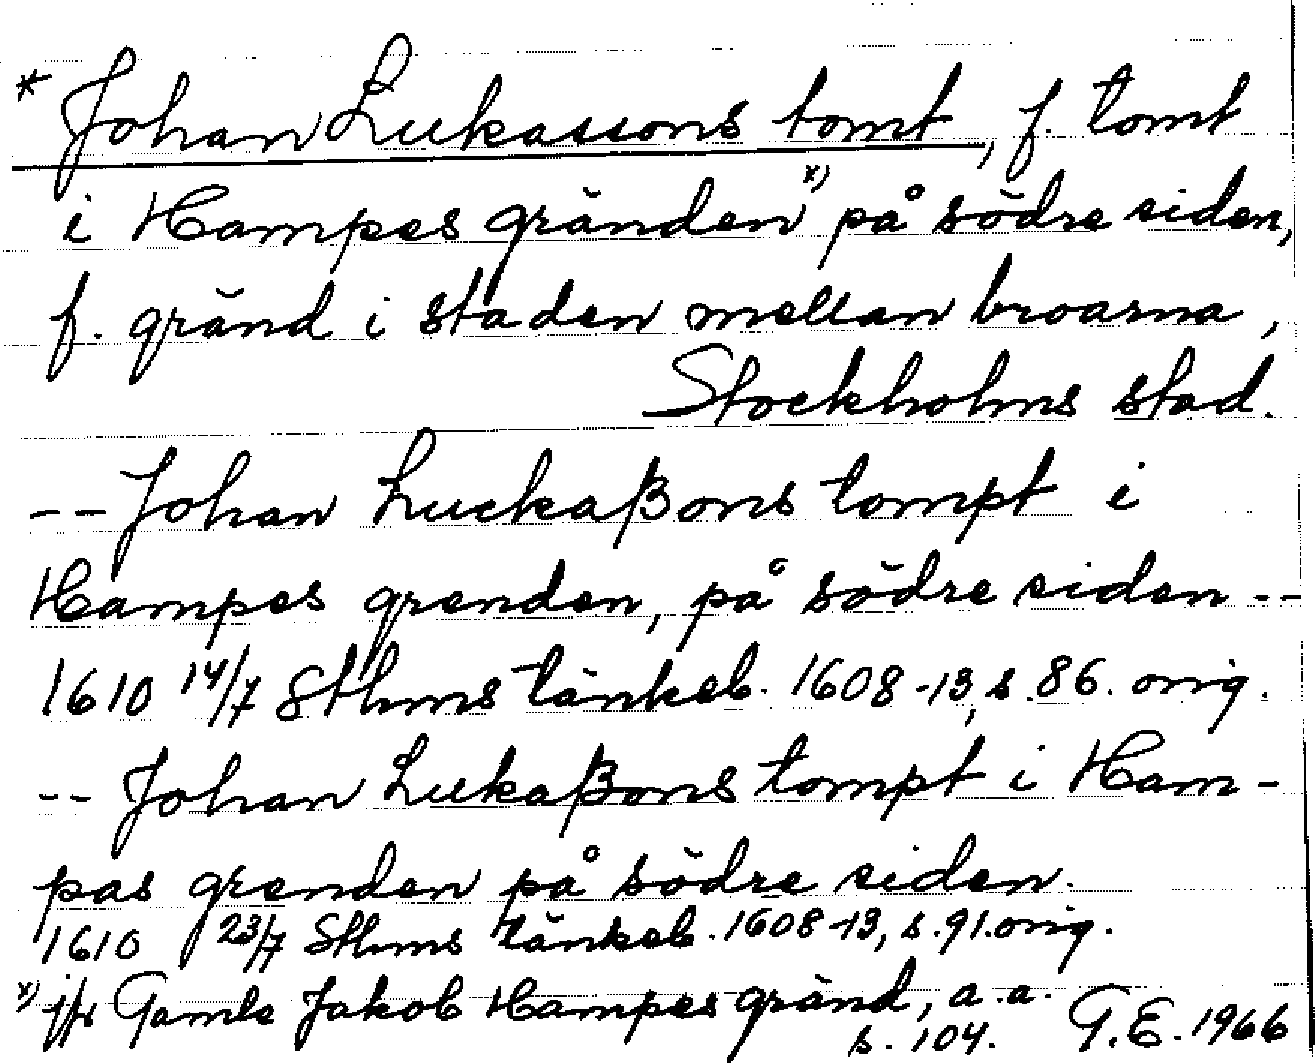 * Johan Lukassons tomt, f. tomt
i Hampes gränden x) på södre siden,
f. gränd i staden mellan broarna,
Stockholms stad.
-- Johan Luckaßons tompt i
Hampes grenden, på södre siden --
1610 14/7 Sthms tänkeb. 1608-13, s. 86. orig.
-- Johan Lukaßons tompt i Ham-
pas grenden på södre siden.
1610 23/7 Sthms tänkeb. 1608-13, s. 91. orig.
x) jfr Gamle Jakob Hampes gränd, a.a.
s. 104. G.E. 1966